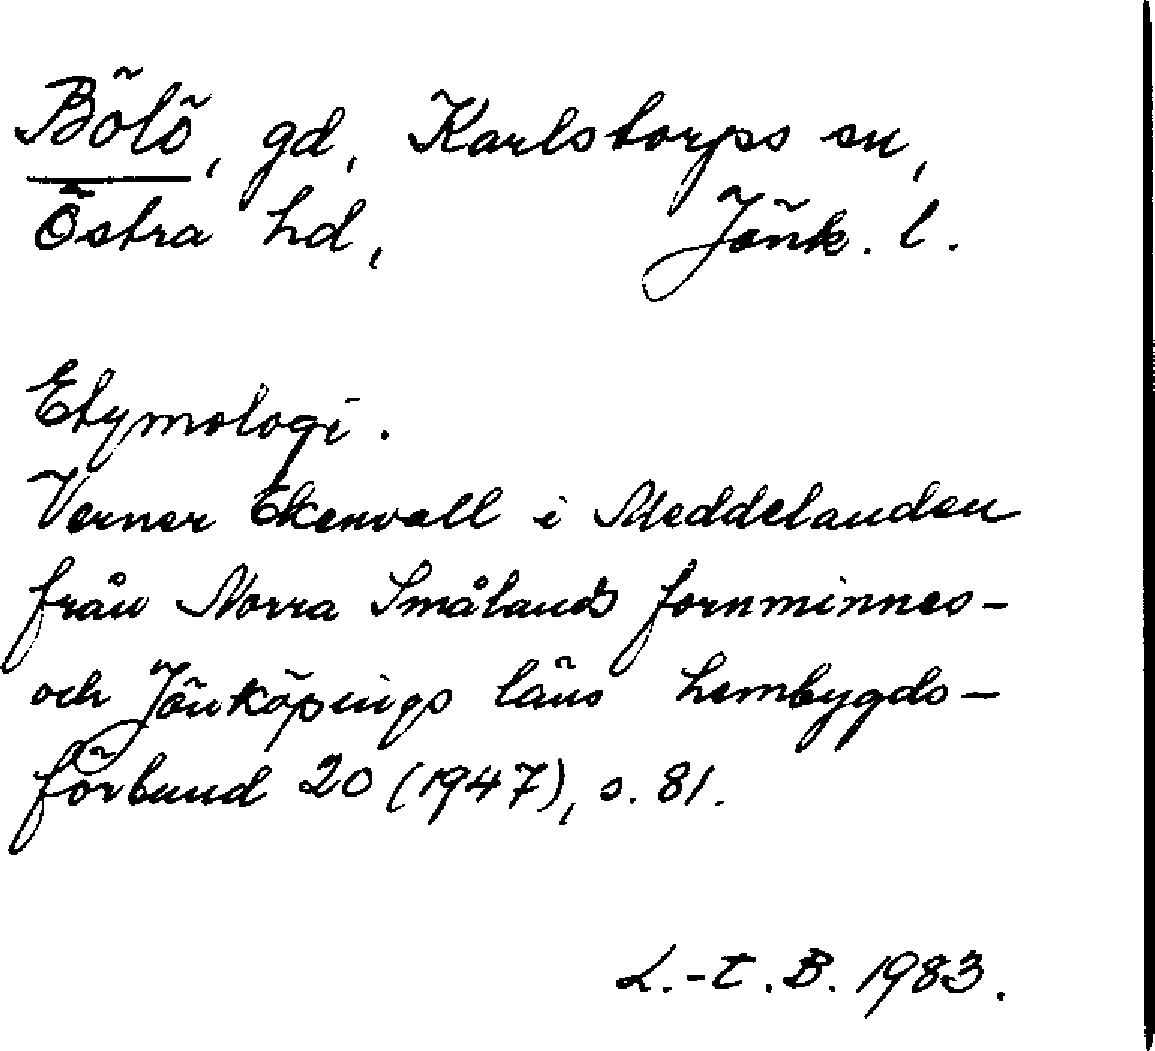 Bölö, gd, Karlstorps sn,
Östra hd, Jönk. l.
Etymologi.
Verner Ekenvall i Meddelanden
från Norra Smålands fornminnes-
och Jönköpings läns hembygds-
förbund 20 (1947), s. 81.
L.-E. B. 1983.